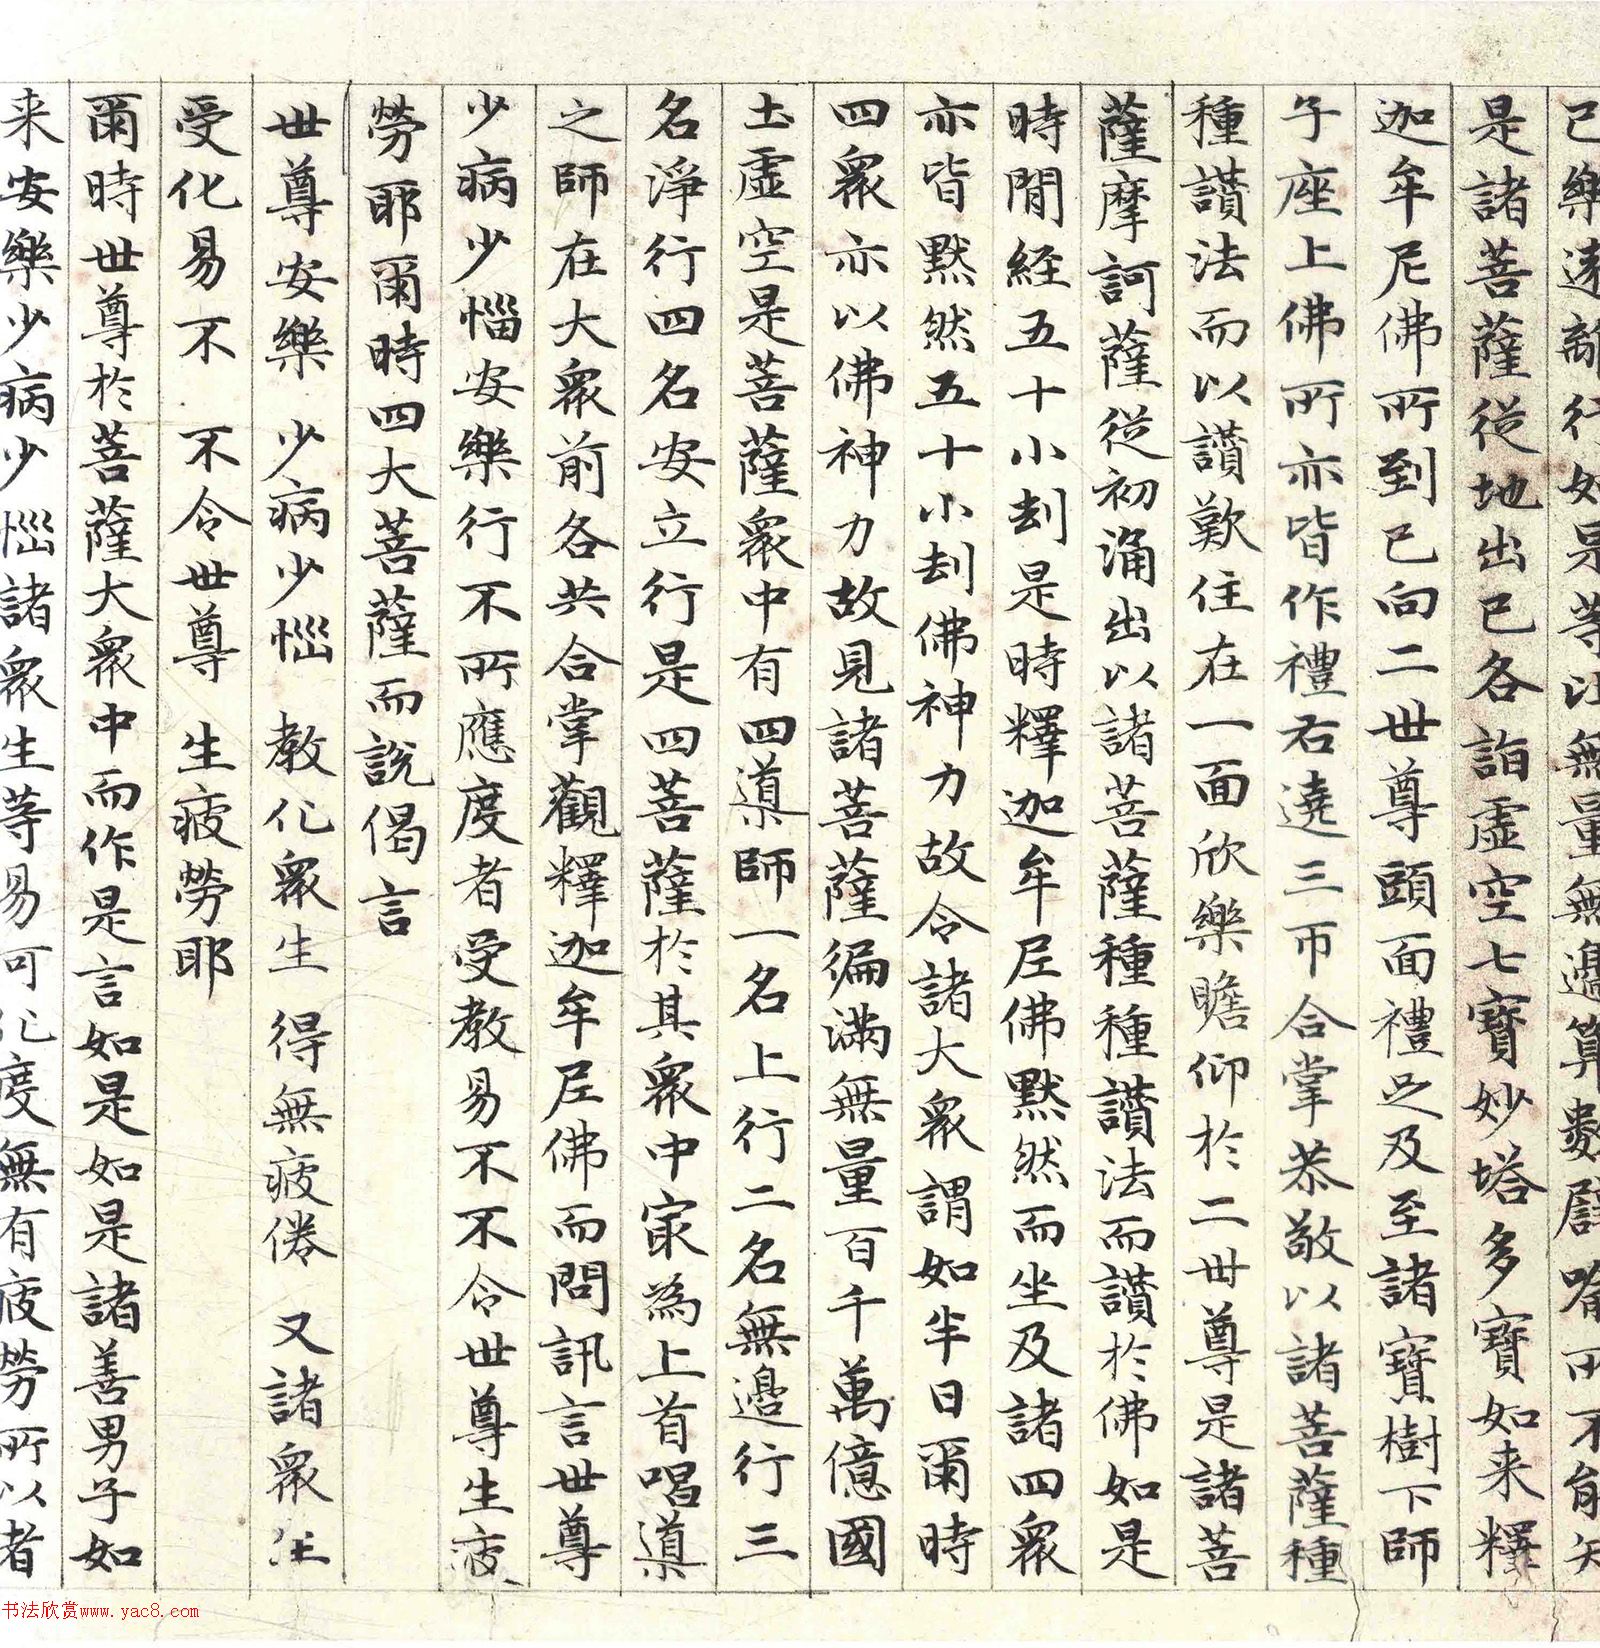 已樂遠離行如是等比無量無邊算數譬喻所不能知
是諸菩薩從地出已各詣虛空七寶妙塔多寶如来釋
迦牟尼佛所到已向二世尊頭面禮足及至諸寶樹下師
子座上佛所亦皆作禮右遶三帀合掌恭敬以諸菩薩種
種讚法而以讚歎住在一面欣樂瞻仰於二世尊是諸菩
薩摩訶薩從初涌出以諸菩薩種種讚法而讚於佛如是
時間經五十小刦是時釋迦牟尼佛默然而坐及諸四衆
亦皆默然五十小刦佛神力故令諸大衆謂如半日爾時
四衆亦以佛神力故見諸菩薩徧滿無量百千萬億國
土虛空是菩薩衆中有四導師一名上行二名無邊行三
名淨行四名安立行是四菩薩於其衆中㝡為上首唱導
之師在大衆前各共合掌觀釋迦牟尼佛而問訊言世尊
少病少惱安樂行不所應度者受教易不不令世尊生疲
勞耶爾時四大菩薩而說偈言
世尊安樂 少病少惱 教化衆生 得無疲倦 又諸衆生
受化易不 不令世尊 生疲勞耶
爾時世尊於菩薩大衆中而作是言如是如是諸善男子如
来安樂少病少惱諸衆生等易可化度無有疲勞所以者
书法欣赏www.yac8.com